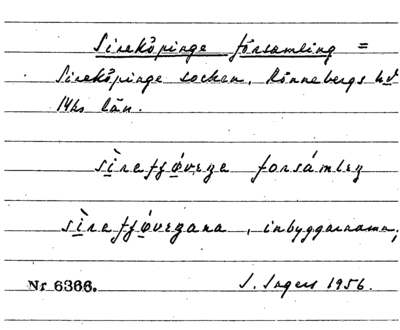 Sireköpinge församling =
Sireköpinge socken, Rönnebergs hd
Mhs län.
sìrefʃǿvɛʒe forsámlɛʒ
sìrefʃǿvɛʒana, inbyggarnamn;
Nr 6366. S. Ingers 1956.